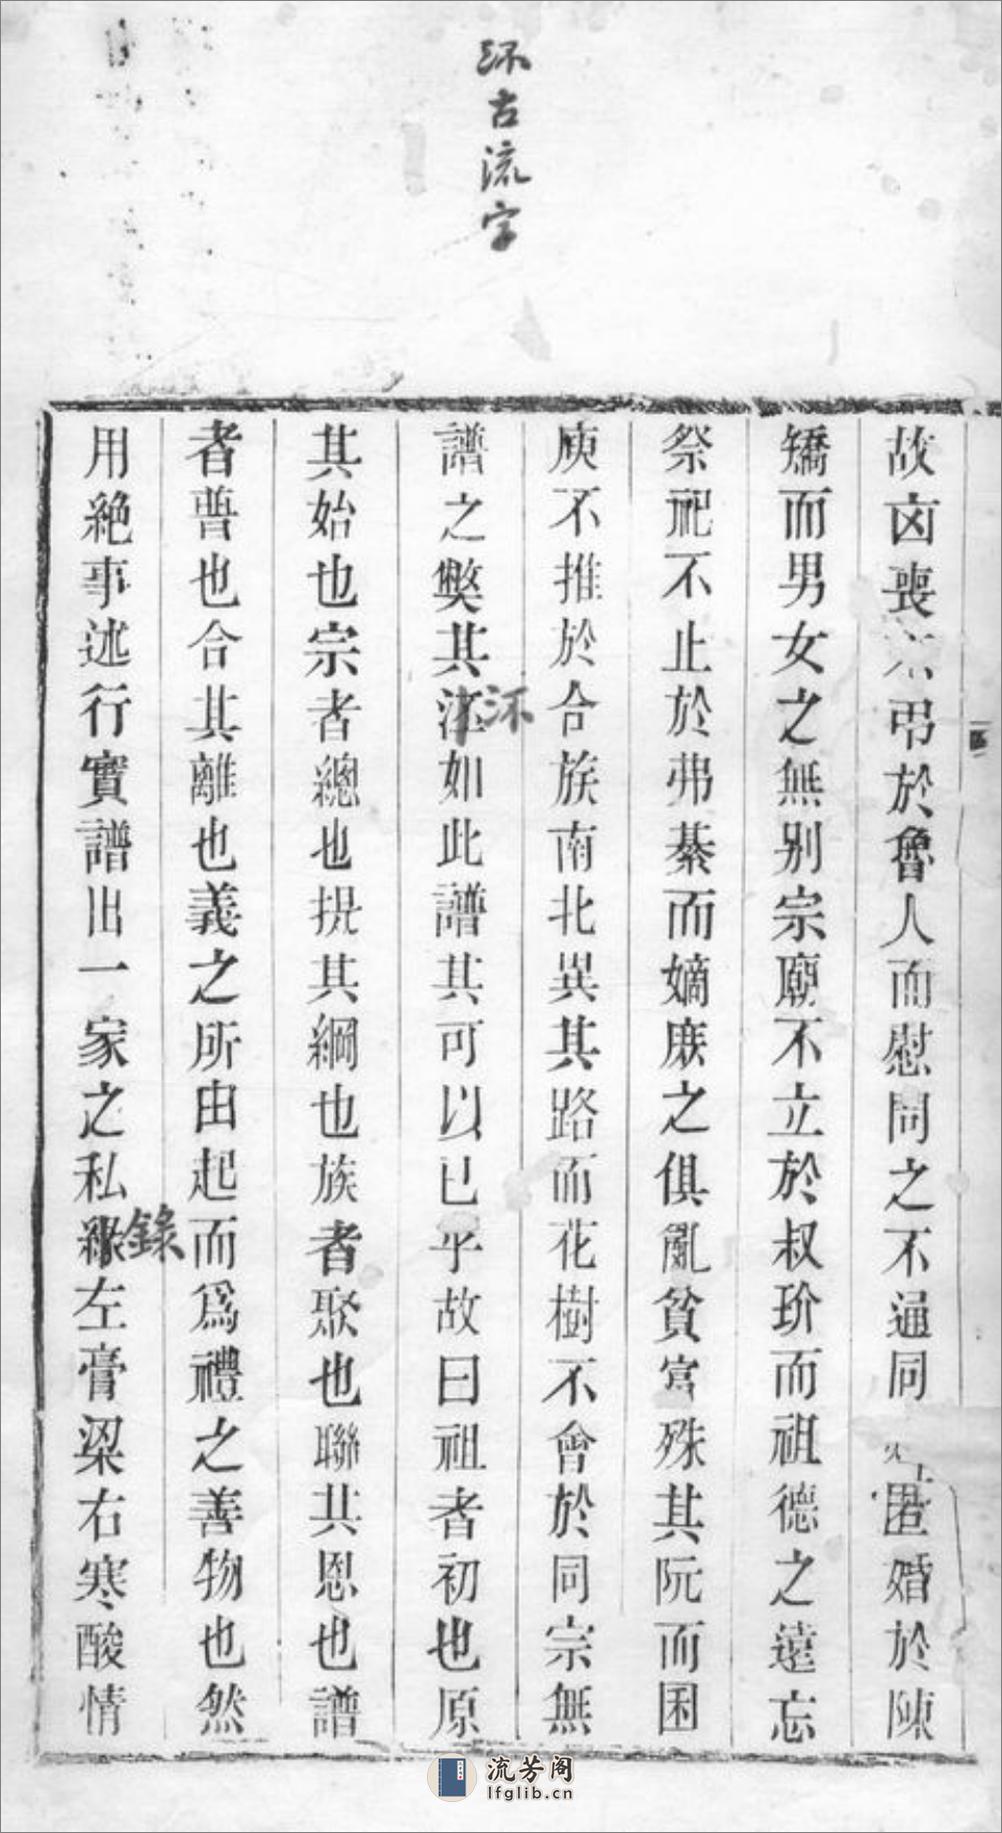 㳅古流字
故㐫喪不弔於魯人而慰問之不通同匿婚於陳
矯而男女之無别宗廟不立於叔玠而祖德之遠忘
祭祀不止於弗綦而嫡庶之俱亂貧富殊其阮而困
庾不推於合族南北異其路而花樹不會於同宗無
譜之獘其如此譜其可以已乎故曰祖者初也原
㳅
其始也宗者總也提其綱也族者聚也聯其恩也譜
者普也合其離也義之所由起而爲禮之善物也然
用絶事述行實譜出一家之私緣左膏粱右寒酸情
錄
流芳阁
lfglib.cn